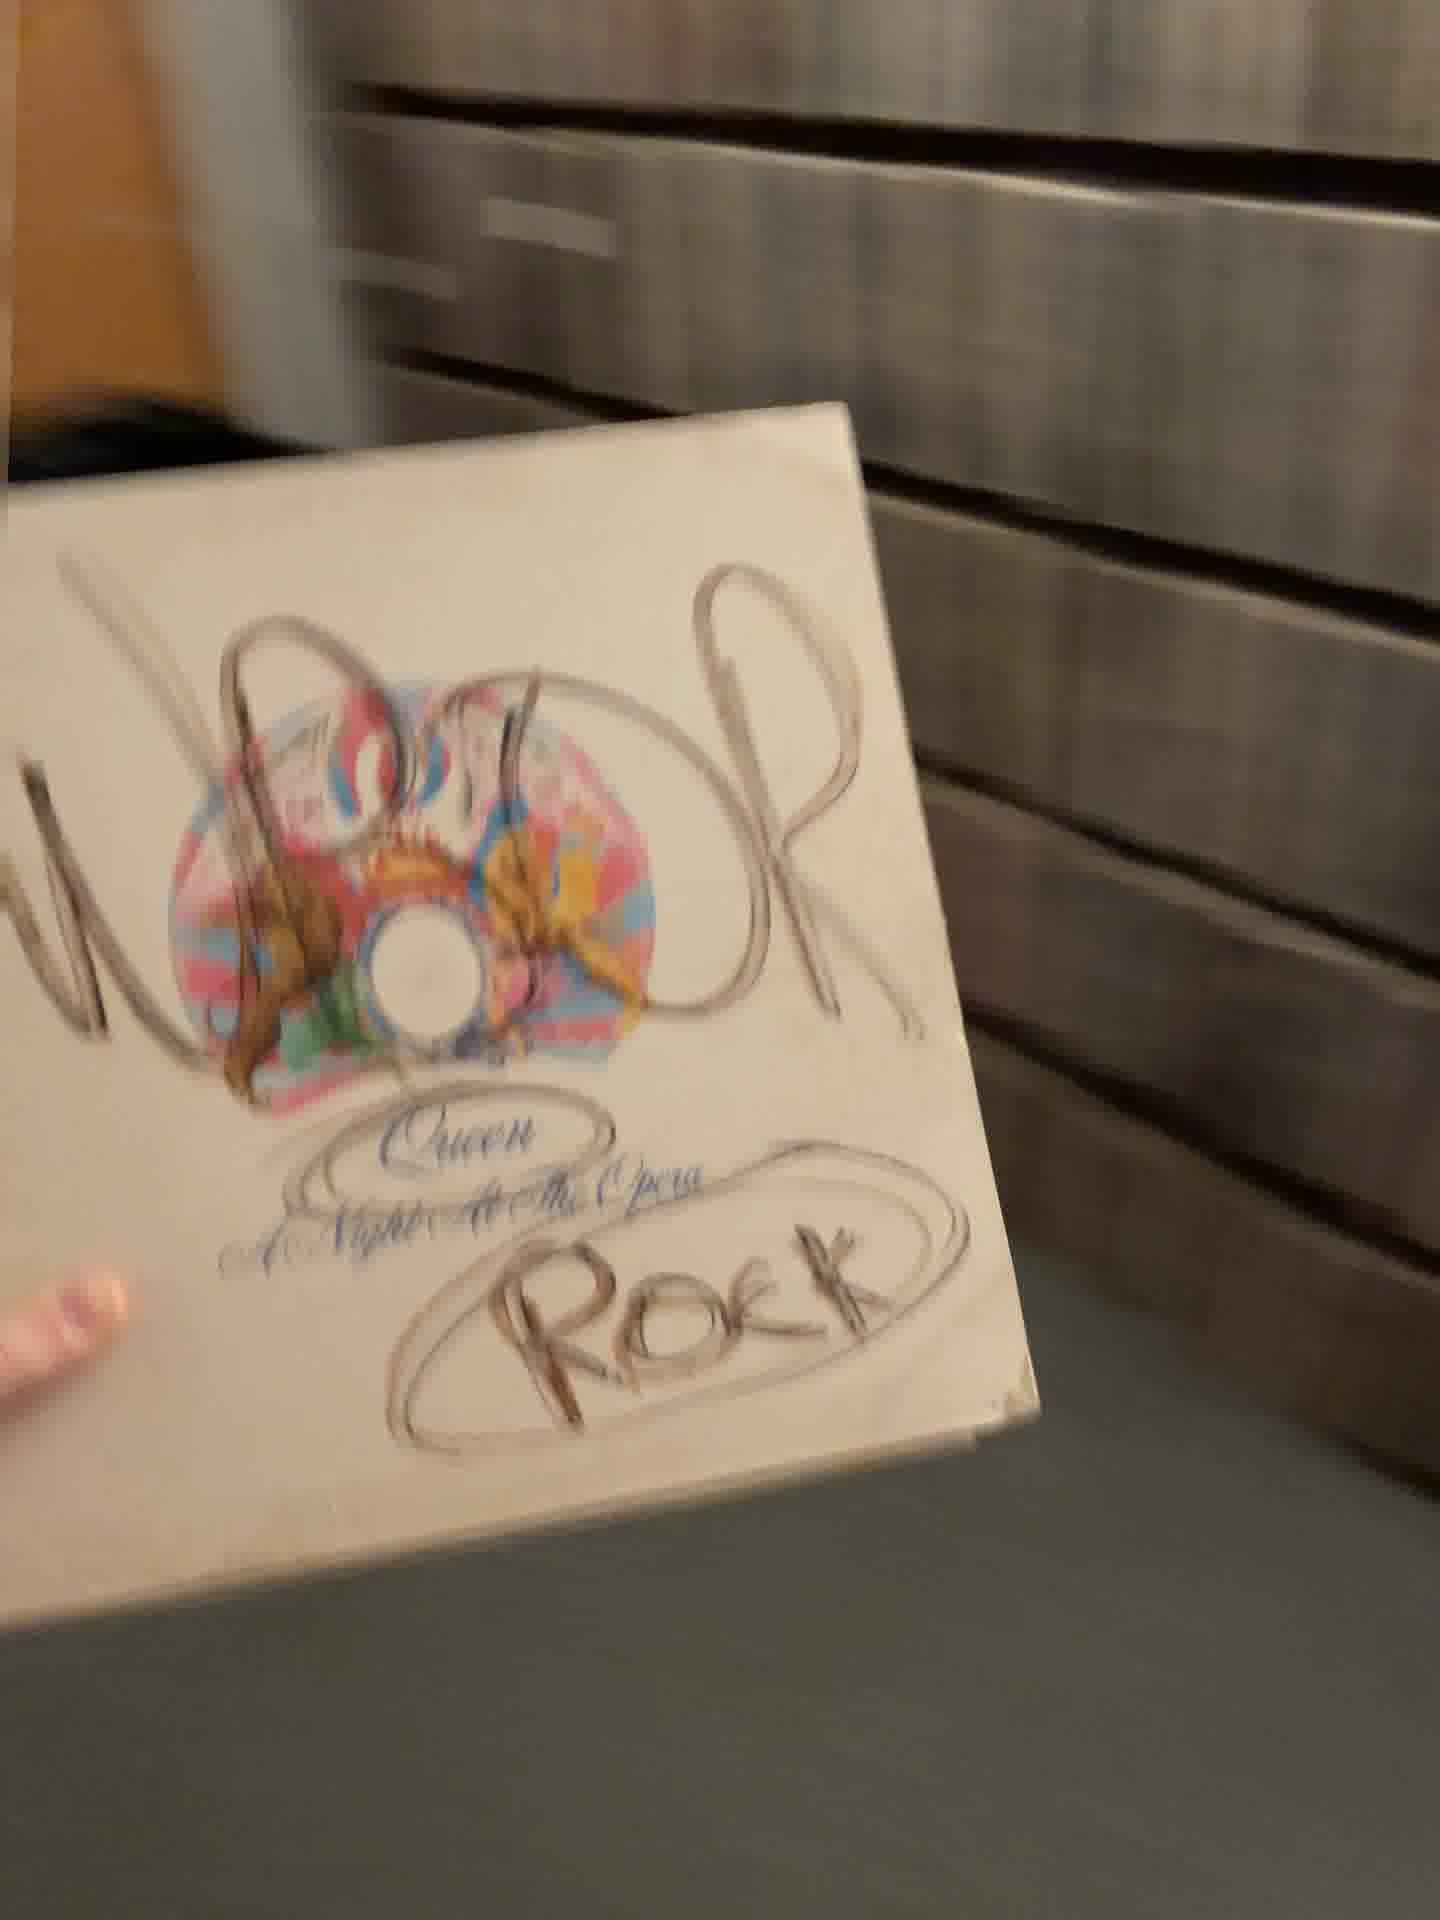 WPDR
Queen
A Night At The Opera
ROCK